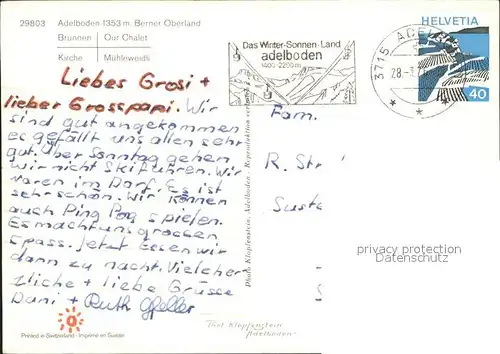 29803 Adelboden 1353 m. Berner Oberland
Brunnen Our Chalet
Kirche Mühleweidli
Das Winter-Sonnen-Land
adelboden
1400-2200m
3715 ADELBODEN
28.-1.
HELVETIA
40
Liebes Grosi +
lieber Grosspapi. Wir
sind gut angekommen
es gefällt uns allen sehr
gut. Über Sonntag gehen
wir nicht Skifahren. Wir
waren im Dorf. Es ist
sehr schön. Wir können
auch Ping Pog spielen.
Es macht uns grossen
Spass. Jetzt Essen wir
dann zu nacht. Vielcher
zliche + liebe Grüsse
Dani + Ruth
Fam.
R. Str
Suste
S
Photo Klopfenstein, Adelboden - Reproduktion verboten
privacy protection
Datenschutz
Printed in Switzerland - Imprimé en Suisse
Thol Klopfenstein
Adelboden